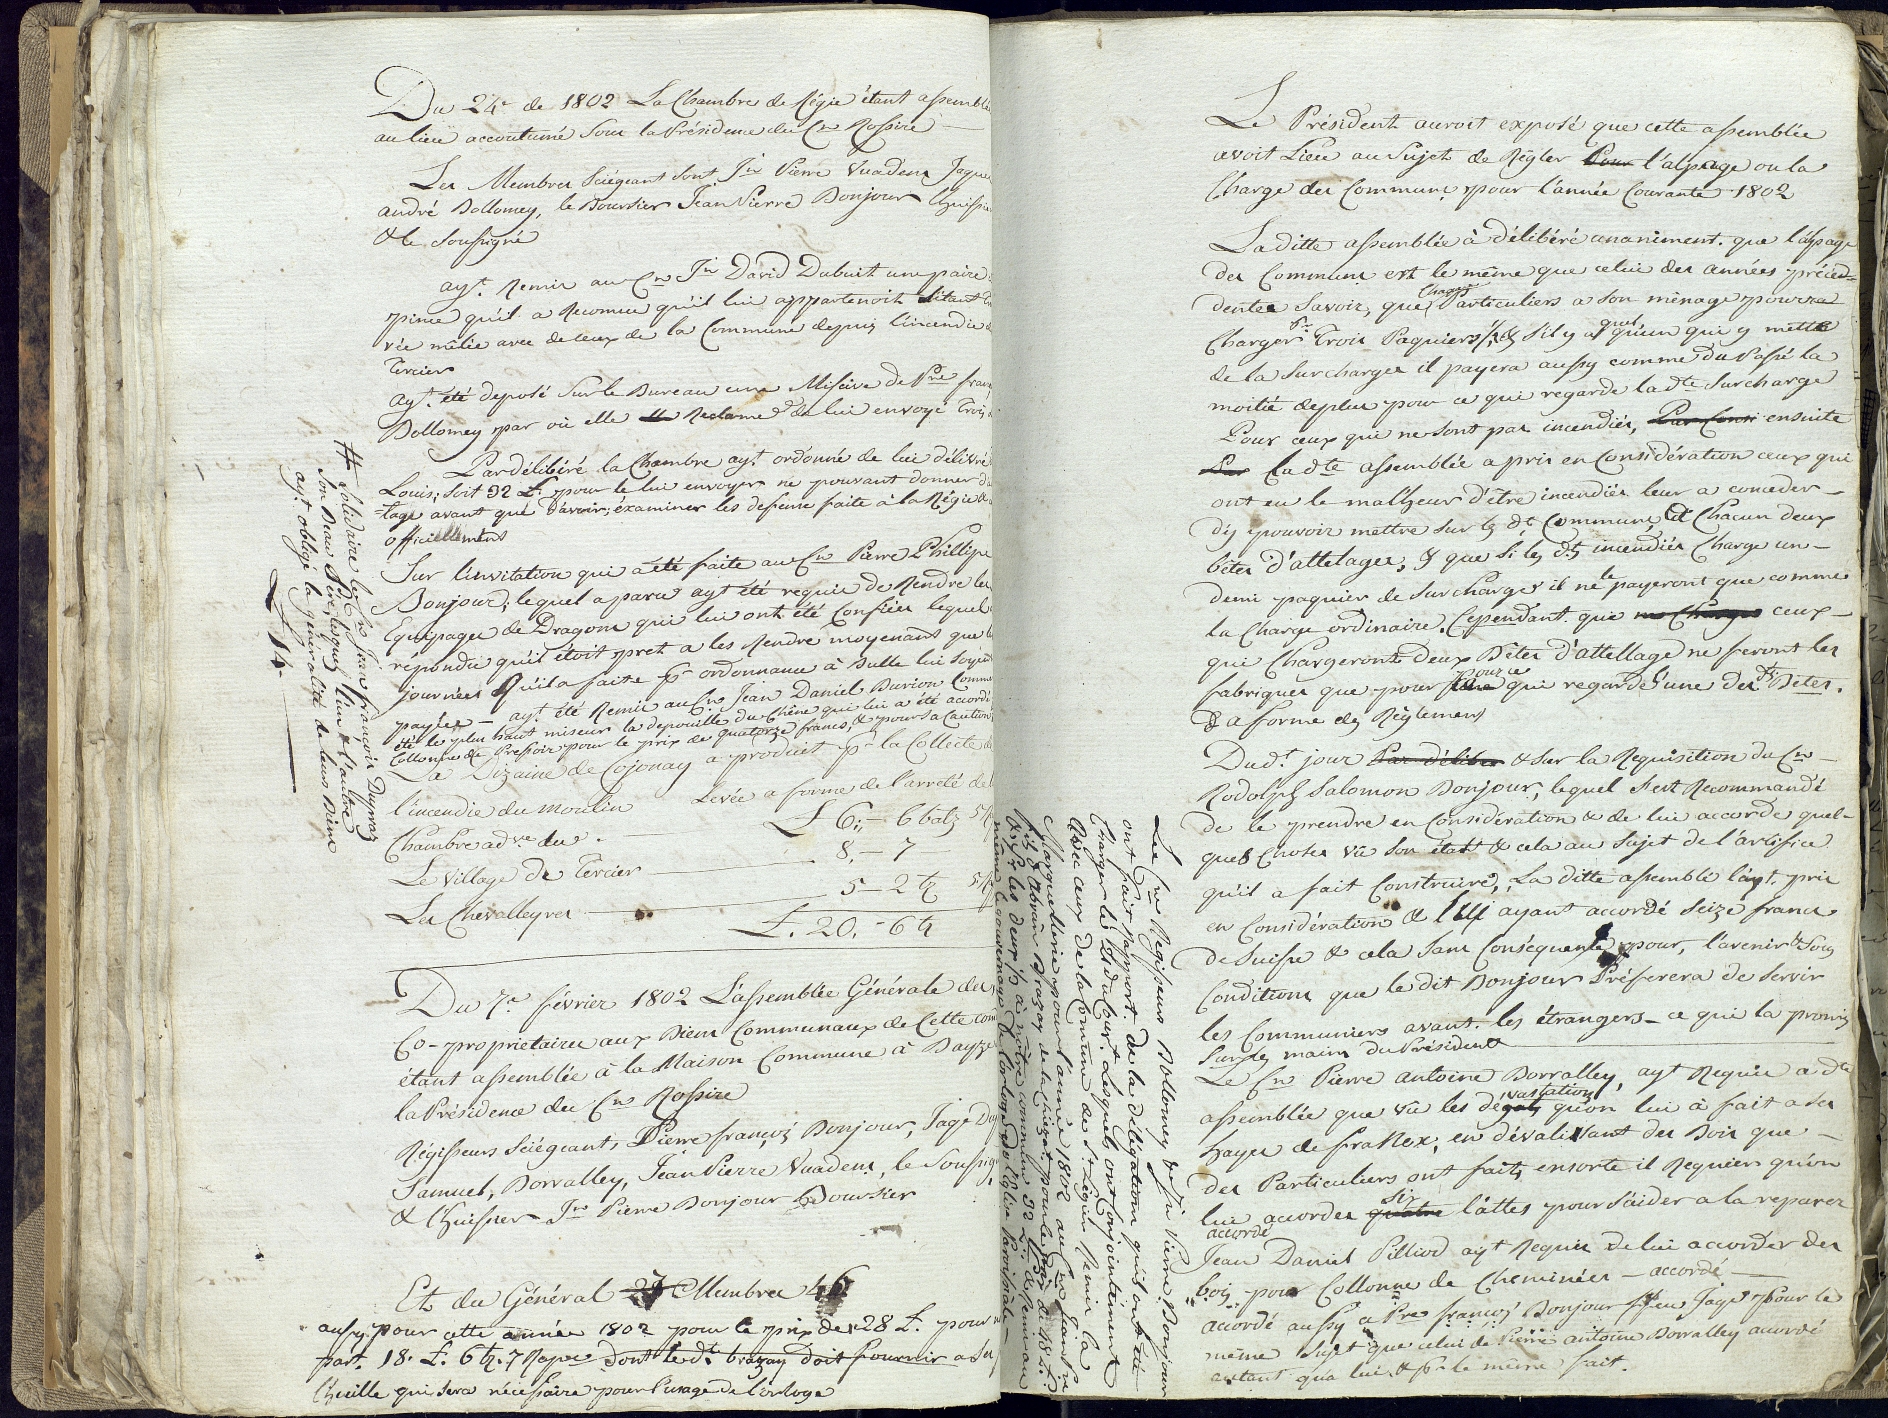 Du 24e de 1802 La Chambre de Régie étant assemblée
au lieu accoutumé sous la Présidence du Cn Rossire
Les Membres Sciégeant sont Jn Pierre Vuadens Jaques
andré Dollomey, le Boursier Jean Pierre Bonjour l'huissier
& le soussigné
ayt. Remis au Cn Jn David Dubuit une paire
pince qu'il a Reconnue qu'il lui appartenoit
vée mêlée avec de ceux de la Commune depuis l'incendie
Tercier
ayt. été déposé sur le Bureau une Missive de Pre franç
Dollomey par où elle Reclame de lui envoyé Trois
Par délibéré la Chambre ayt. ordonné de lui délivré
Louis, soit 32 L. pour le lui envoyer ne pouvant donner d
=tage avant que d'avoir examiner les defense faite à la Régie
officiellement
Sur l'invitation qui a été faite au Cn Pierre Phillipe
Bonjour, lequel a paru ayt été requis de Rendre les
Equipages de Dragons qui lui ont été confiées lequel
répondu qu'il étoit pret a les Rendre moyenant que
journées Qu'il a faite pr ordonnance à Bulle lui soyent
payées — ayt. été Remis au Cn Jean Daniel Burion comme
été le plus haut miseur la depouille du chêne qui lui a été accordé
Collonne de Pressoir pour le prix de quatorze francs, & pour sa Caution
# Solidaire le Cn Jean françois Dupraz
Son Beau Père lesquels l'un & l'autre
ayt obligé la généralité de leurs Biens
L 14.
La Dizaine de Cojonay a produit pr la Collecte
l'incendie du moulin Levée a forme de l'arreté de
Chambre adve du. L 6.– 6 batz
Le Village de Tercier 8.– 7
Les Chevalleyres 5 – 2 tz
L. 20. – 6 tz
Du 7e février 1802 L'assemblée Générale des
Co-propriétaires aux Biens Communaux de Cette com
étant assemblée à la Maison Commune à Bayze
la Présidence du Cn Rossire
Régisseurs Sciégeant, Pierre françois Bonjour, Jaqe
Samuel, Dorvalley, Jean Pierre Vuadens, le Soussigné
& l'huissier Jn Pierre Bonjour le Boursier
Et du Général Membres 46
aussy pour cette année 1802 pour le prix de 28 L. pour
part. 18. L. 6 tz. 7 Rapes dont le dt. brazay doit fournir a ses
l'huille qui sera nécessaire pour l'usage de l'orloge
Les Cns Regisseurs Dollomey & Jn Pierre Bonjour
ont fait rapport de la délégation qu'ils ont été
Chargez le 21 du Court. Lesquels ont conjointement
Avec ceux de la Commune de St Légier Remis la
Marguellerie pour l'année 1802 au Cn Jean Pre
fils d'Abram Brazay de la Chiezat pour le prix de 48 L.
& Sr les deux 1/3 à notre commune 32 L. & Remis au
même le gouvernage de l'orloge de l'Eglise Paroissiale
Le Président auroit exposé que cette assemblée
avoit Lieu au Sujet de Régler Pour l'alpage ou la
Charge des Communs pour l'année Courante 1802
La ditte assemblée à délibéré unaniment. que l'alpage
des Communs est le même que celui des années précéd=
dentes Savoir, que Chaque Particuliers a son ménage pourra
Charger pr Trois Paquiers 1/2, & S'il y a quel qu'un qui y mette
de la Surcharger il payera aussy comme du Passé la
moitié deplus pour ce qui regarde la dte Surcharge
Pour ceux qui ne sont pas incendiés, Par Consé ensuite
Par la dte assemblée a pris en Considération ceux qui
ont eu le malheur d'être incendiés leur a conceder
d'y pouvoir mettre sur les dts Communs, Chacun deux
bêtes d'attelages, & que si les dts incendiés Charge un
demi paquier de Surcharge il ne le payeront que comme
la Charge ordinaire. Cependant que ceux
qui Chargeront deux Bêtes d'attellage ne feront les
fabriques que pour ce qui regarde l'une des dts Betes.
& a forme des Règlemens
Du dt. jour Par délibéré & sur la Requisition du Cn
Rodolph Salomon Bonjour, lequel s'est Recommandé
de le prendre en Considération & de lui accorde quel=
ques choses vû son état & cela au Sujet de l'artifice
qu'il a fait Construire, La ditte assemblé l'ayt. pris
en Considération & lui ayant accordé Seize francs
de Suisse & cela sans Conséquente pour, l'avenir & sous
Conditions que le dit Bonjour Préferera de Servir
les Communiers avant. les étrangers – ce qui la promis
Sur les mains du Président
Le Cn Pierre antoine Dorvalley, ayt Requis a dte
assemblée que vû les dévastations qu'on lui à fait a ses
hayes de fraNex, en dévalissant des Bois que
des Particuliers ont faits ensorte il Requiers qu'on
lui accordes quatre six lattes pour S'aider a la reparer
accordé
Jean Daniel Pilliod ayt Requis de lui accorder des
bois pour Collonne de Cheminées – accordé –
accordé aussy a Pre françois Bonjour ffeu Jaqe Pour le
même Sujet que celui de Pierre antoine Dorvalley accordé
autant qua lui & pr le même fait.